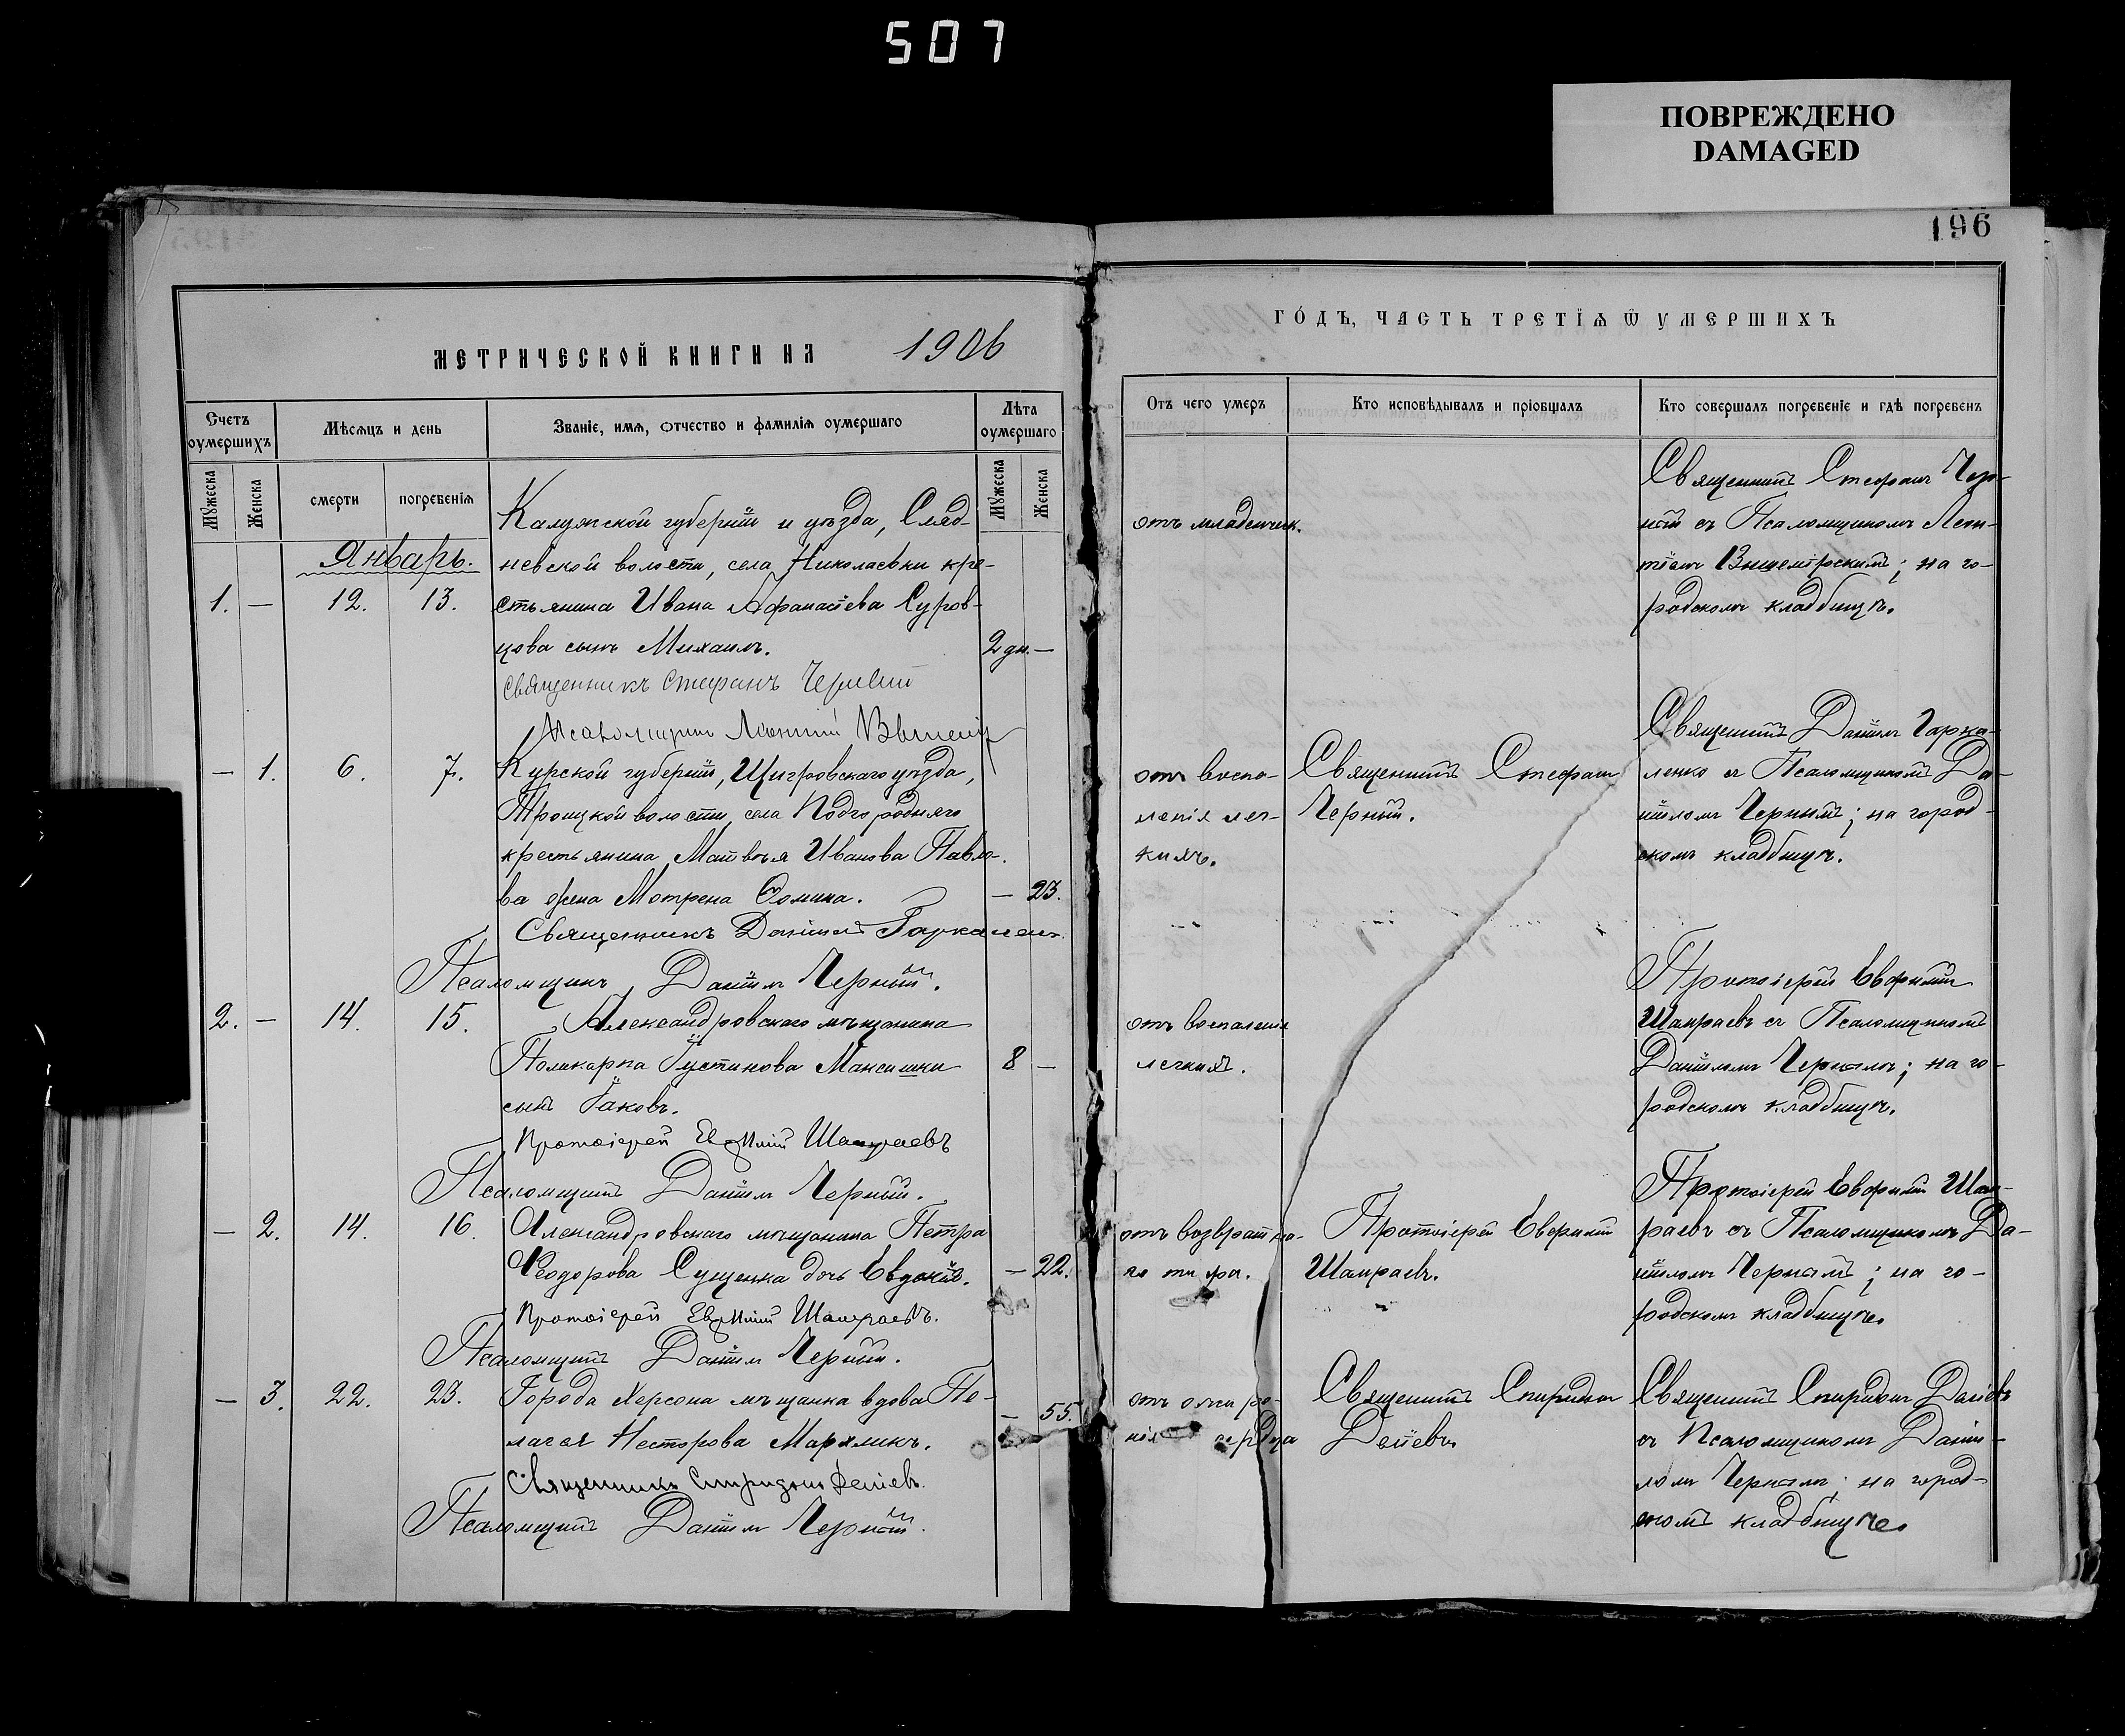 507
ПОВРЕЖДЕНО
DAMAGED
196
МЕТРИЧЕСКОЙ КНИГИ НА 1906
ГО́ДЪ, ЧАСТЬ ТРЕТІѦ Ѿ УМЕРШИХЪ
Счетъ оумершихъ
Мѣсѧцъ и день
Званіе, имѧ, отчество и фамиліѧ оумершаго
Лѣта оумершаго
Отъ чего умеръ
Кто исповѣдывалъ и пріобщалъ
Кто совершалъ погребеніе и гдѣ погребенъ
Мꙋжеска
Женска
смерти
погребеніѧ
Мꙋжеска
Женска
Январь.
1. — 12. 13.
Калужской губерніи и уѣзда,
невской волости, села Николаевки кре-
стьянина Ивана Афанасіева Суров-
цова сынъ Михаилъ.
2 дн. —
Священникъ Стефанъ Черный
Псаломщикъ
отъ младенческ.
Священникъ Стефанъ Чер-
ный съ Псаломщикомъ Леон-
тіемъ; на го-
родскомъ кладбищѣ.
— 1. 6. 7.
Курской губерніи, Щигровскаго уѣзда,
Троицкой волости, села Подгородняго
крестьянина Матвѣя Иванова Павло-
ва жена Мотрона Ѳомина.
— 23.
Священникъ Даніилъ Гаркаленко
Псаломщикъ Даніилъ Черный.
отъ воспа-
ленія лег-
кихъ.
Священникъ Стефанъ
Черный.
Священникъ Даніилъ Гарка-
ленко съ Псаломщикомъ Да-
ніиломъ Чернымъ; на город-
скомъ кладбищѣ.
2. — 14. 15.
Александровскаго мѣщанина
Поликарпа Іустинова Максишки
сынъ Іаковъ.
8 —
Протоіерей Евѳимій Шамраевъ
Псаломщикъ Даніилъ Черный.
отъ воспаленія
легкихъ.
Протоіерей Евфимій
Шамраевъ съ Псаломщикомъ
Даніиломъ Чернымъ; на го-
родскомъ кладбищѣ.
— 2. 14. 16.
Александровскаго мѣщанина Петра
Ѳеодорова Сущенка дочь Евдокія.
— 22.
Протоіерей Евѳимій Шамраевъ.
Псаломщикъ Даніилъ Черный.
отъ возвратна-
го тифа.
Протоіерей Евфимій
Шамраевъ.
Протоіерей Евфимій Шам-
раевъ съ Псаломщикомъ Да-
ніиломъ Чернымъ; на го-
родскомъ кладбищѣ.
— 3. 22. 23.
Города Херсона мѣщанка вдова Пе-
лагея Несторова Маряликъ.
— 55.
Священникъ Спиридонъ Делиевъ.
Псаломщикъ Даніилъ Черный.
отъ ожирѣ-
нія сердца
Священникъ Спиридонъ
Священникъ Спиридонъ
съ Псаломщикомъ Даніи-
ломъ Чернымъ; на город-
скомъ кладбищѣ.